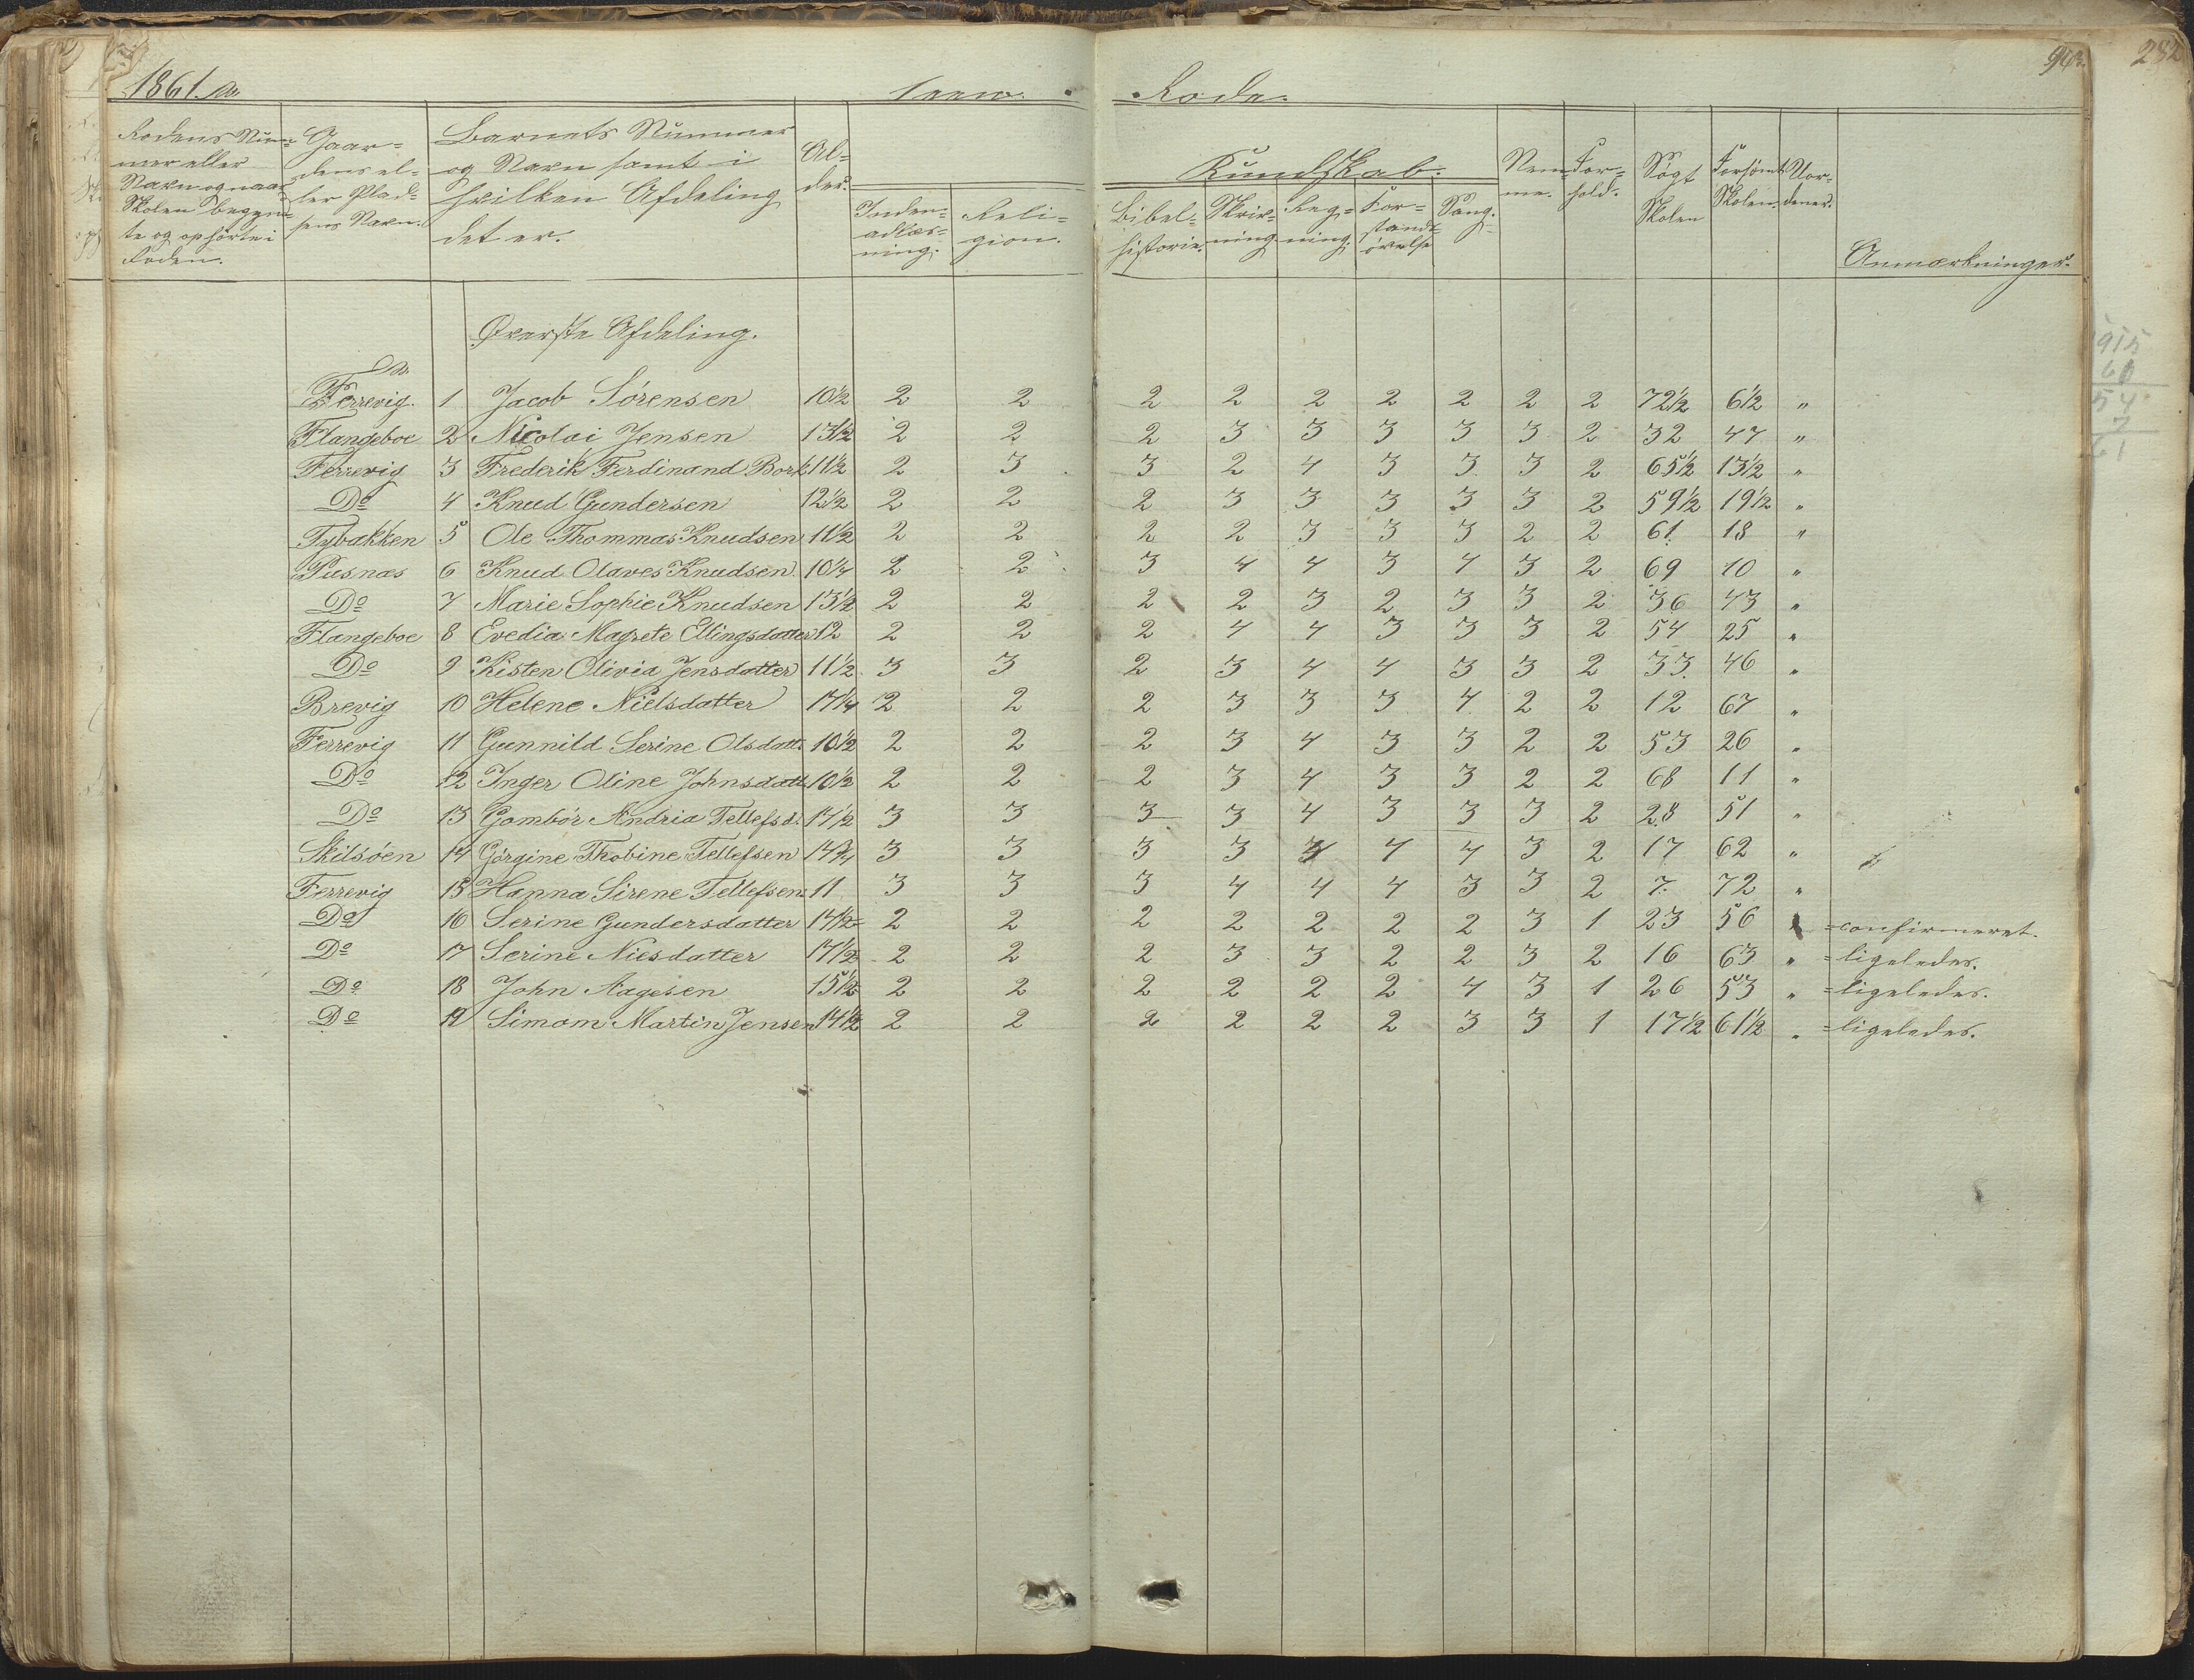 1861.
Rode.
282
Rodens Num-
mer eller
Navn og naar
Skolen begynd-
te og ophörte i
Roden.
Gaar-
dens el-
ler Plad-
sens Navn.
Barnets Nummer
og Navn samt i
hvilken Afdeling
det er.
Al-
der.
Inden-
adlæs-
ning.
Reli-
gion.
Kundskab.
Bibel-
historie.
Skriv-
ning.
Reg-
ning.
For-
stands-
övelse
Sang.
Nem-
me.
For-
hold.
Sögt
Skolen
Forsömt
Skolen.
Uor-
dener.
Anmærkninger.
Øverste Afdeling.
Færrevig. 1 Jacob Sörensen 10½ 2 2 2 2 2 2 2 2 2 72½ 6½ "
Flangeboe 2 Nicolai Jensen 13½ 2 2 2 3 3 3 3 3 2 32 47 "
Færrevig 3 Frederik Ferdinand Bork 11½ 2 3 3 2 4 3 3 3 2 65½ 13½ "
Do 4 Knud Gundersen 12½ 2 2 2 3 3 3 3 3 2 59½ 19½ "
Tybakken 5 Ole Thommas Knudsen 11½ 2 2 2 2 3 3 3 2 2 61 18 "
Pusnæs 6 Knud Olaves Knudsen 10¼ 2 2 3 4 4 3 4 3 2 69 10 "
Do 7 Marie Sophie Knudsen 13½ 2 2 2 2 3 2 3 3 2 36 43 "
Flangeboe 8 Evedia Magrete Ellingsdatter 12 2 2 2 4 4 3 3 3 2 54 25 "
Do 9 Kisten Olivia Jensdatter 11½ 3 3 2 3 4 4 3 3 2 33 46 "
Brevig 10 Helene Nielsdatter 14¼ 2 2 2 3 3 3 4 2 2 12 67 "
Ferrevig 11 Gunnild Serine Olsdatt. 10½ 2 2 2 3 4 3 3 2 2 53 26 "
Do 12 Inger Oline Johnsdatt. 10½ 2 2 2 3 4 3 3 2 2 68 11 "
Do 13 Gombör Andria Tellefsd. 14½ 3 3 3 3 4 3 3 3 2 28 51 "
Skilsöen 14 Görgine Thobine Tellefsen 14¾ 3 3 3 3 4 4 4 3 2 17 62 "
Ferrevig 15 Hanna Sirene Tellefsen 11 3 3 3 4 4 4 3 3 2 7 72 "
Do 16 Serine Gundersdatter 14½ 2 2 2 2 2 2 2 3 1 23 56 " =confirmeret.
Do 17 Serine Niesdatter 14½ 2 2 2 3 3 2 2 3 2 16 63 " =ligeledes.
Do 18 John Aagesen 15½ 2 2 2 2 2 2 4 3 1 26 53 " =ligeledes.
Do 19 Simom Martin Jensen 14½ 2 2 2 2 2 2 3 3 1 17½ 61½ " =ligeledes.